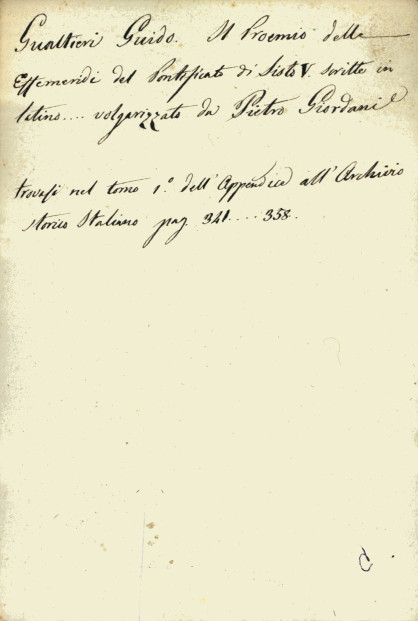 Gualtieri Guido. Il Proemio delle
Effemeridi del Pontificato di Sisto V. scritte in
latino.... volgarizzato da Pietro Giordani
trovasi nel tomo 1.º dell'Appendice all'Archivio
storico Italiano pag. 341.... 358.
C